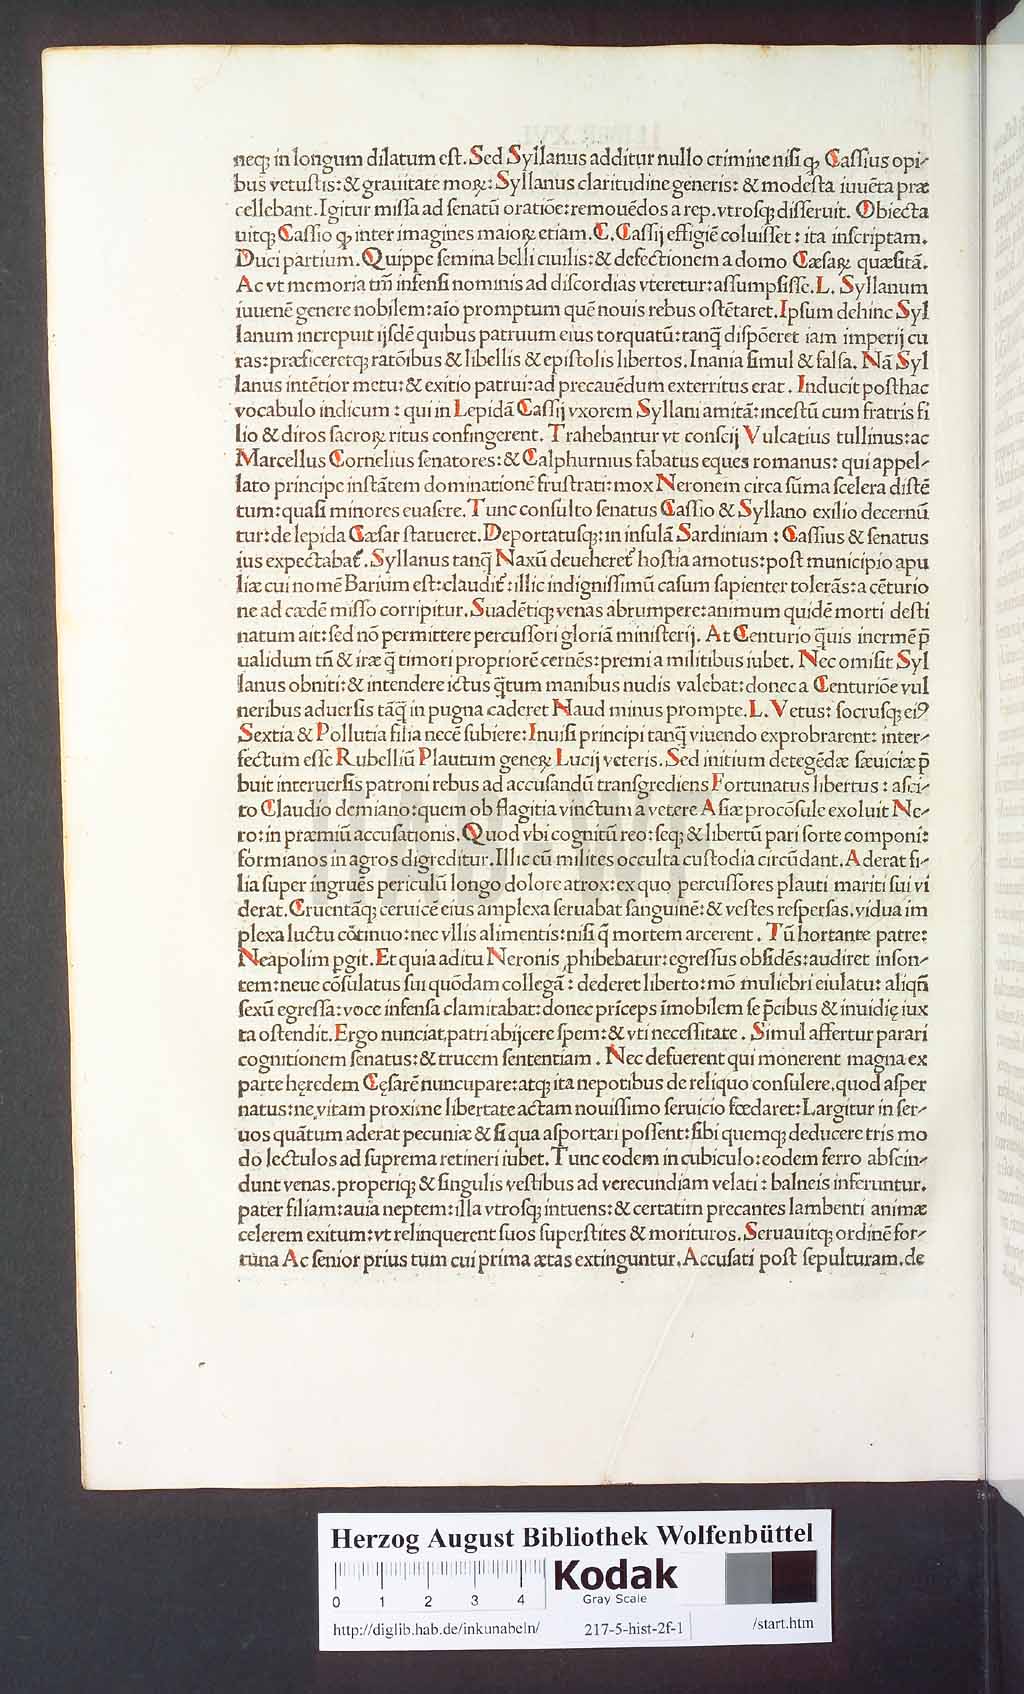 neqꝫ in longum dilatum est. Sed Syllanus additur nullo crimine nisi ꝙ Cassius opi-
bus vetustis: & grauitate moꝝ: Syllanus claritudine generis: & modesta iuuēta præ
cellebant. Igitur missa ad senatū oratiōe: remouēdos a rep. vtrosqꝫ disseruit. Obiecta
uitqꝫ Cassio ꝙ inter imagines maioꝝ etiam. C. Cassij effigiē coluisset: ita inscriptam.
Duci partium. Quippe semina belli ciuilis: & defectionem a domo Cæsaꝝ quæsitā.
Ac vt memoria tm̄ infensi nominis ad discordias vteretur: assumpsisse. L. Syllanum
iuuenē genere nobilem: aīo promptum quē nouis rebus ostētaret. Ipsum dehinc Syl
lanum increpuit ijsdē quibus patruum eius torquatū: tanq̄ dispōeret iam imperij cu
ras: præficeretqꝫ ratōibus & libellis & epistolis libertos. Inania simul & falsa. Nā Syl
lanus intētior metu: & exitio patrui: ad precauēdum exterritus erat. Inducit posthac
vocabulo indicum: qui in Lepidā Cassij vxorem Syllani amitā: incestū cum fratris fi
lio & diros sacroꝝ ritus confingerent. Trahebantur vt conscij Vulcatius tullinus: ac
Marcellus Cornelius senatores: & Calphurnius fabatus eques romanus: qui appel-
lato principe instātem dominationē frustrati: mox Neronem circa sūma scelera distē
tum: quasi minores euasere. Tunc consulto senatus Cassio & Syllano exilio decernū
tur: de lepida Cæsar statueret. Deportatusqꝫ: in insulā Sardiniam: Cassius & senatus
ius expectabat᷑. Syllanus tanq̄ Naxū deueheret᷑ hostia amotus: post municipio apu
liæ cui nomē Barium est: claudit᷑: illic indignissimū casum sapienter tolerās: a cēturio
ne ad cædē misso corripitur. Suadētiqꝫ venas abrumpere: animum quidē morti desti
natum ait: sed nō permittere percussori gloriā ministerij. At Centurio q̄uis inermē p̄
ualidum tn̄ & iræ q̄ timori propriorē cernēs: premi a militibus iubet. Nec omisit Syl
lanus obniti: & intendere ictus q̄tum manibus nudis valebat: donec a Centuriōe vul
neribus aduersis tāq̄ in pugna caderet Naud minus prompte. L. Vetus: socrusqꝫ eiꝰ
Sextia & Pollutia filia necē subiere: Inuisi principi tanq̄ viuendo exprobrarent: inter-
fectum esse Rubelliū Plautum geneꝝ Lucij veteris. Sed initium detegēdæ sæuiciæ p̄
buit interuersis patroni rebus ad accusandū transgrediens Fortunatus libertus: asci-
to Claudio demiano: quem ob flagitia vinctum a vetere Asiæ procōsule exoluit Ne-
ro: in præmiū accusationis. Quod vbi cognitū reo: seqꝫ & libertū pari sorte componi:
formianos in agros digreditur. Illic eū milites occulta custodia circūdant. Aderat fi-
lia super ingruēs periculū longo dolore atrox: ex quo percussores plauti mariti sui vi
derat. Cruentāqꝫ ceruicē eius amplexa seruabat sanguinē: & vestes respersas. vidua im
plexa luctu cōtinuo: nec vllis alimentis: nisi q̄ mortem arcerent. Tū hortante patre:
Neapolim ꝑgit. Et quia aditu Neronis ꝓhibebatur: egressus obsidēs: audiret inson-
tem: neue cōsulatus sui quōdam collegā: dederet liberto: mō muliebri eiulatu: aliqn̄
sexū egressa: voce infensa clamitabat: donec prīceps īmobilem se p̄cibus & inuidię iux
ta ostendit. Ergo nunciat᷑ patri abijcere spem: & vti necessitate. Simul affertur parari
cognitionem senatus: & trucem sententiam. Nec defuerent qui monerent magna ex
parte hęredem Cęsarē nuncupare: atqꝫ ita nepotibus de reliquo consulere. quod asper
natus: ne vitam proxime libertate actam nouissimo seruicio fœdaret: Largitur in ser-
uos quātum aderat pecuniæ & si qua asportari possent: sibi quemqꝫ deducere tris mo
do lectulos ad suprema retineri iubet. Tunc eodem in cubiculo: eodem ferro abscin-
dunt venas. properiqꝫ & singulis vestibus ad verecundiam velati: balneis inferuntur.
pater filiam: auia neptem: illa vtrosqꝫ intuens: & certatim precantes lambenti animæ
celerem exitum: vt relinquerent suos superstites & morituros. Seruauitqꝫ ordinē for-
tuna Ac senior prius tum cui prima ætas extinguntur. Accusati post sepulturam. de
Herzog August Bibliothek Wolfenbüttel
0 1 2 3 4 Kodak
Gray Scale
http://diglib.hab.de/inkunabeln/ 217-5-hist-2f-1 /start.htm